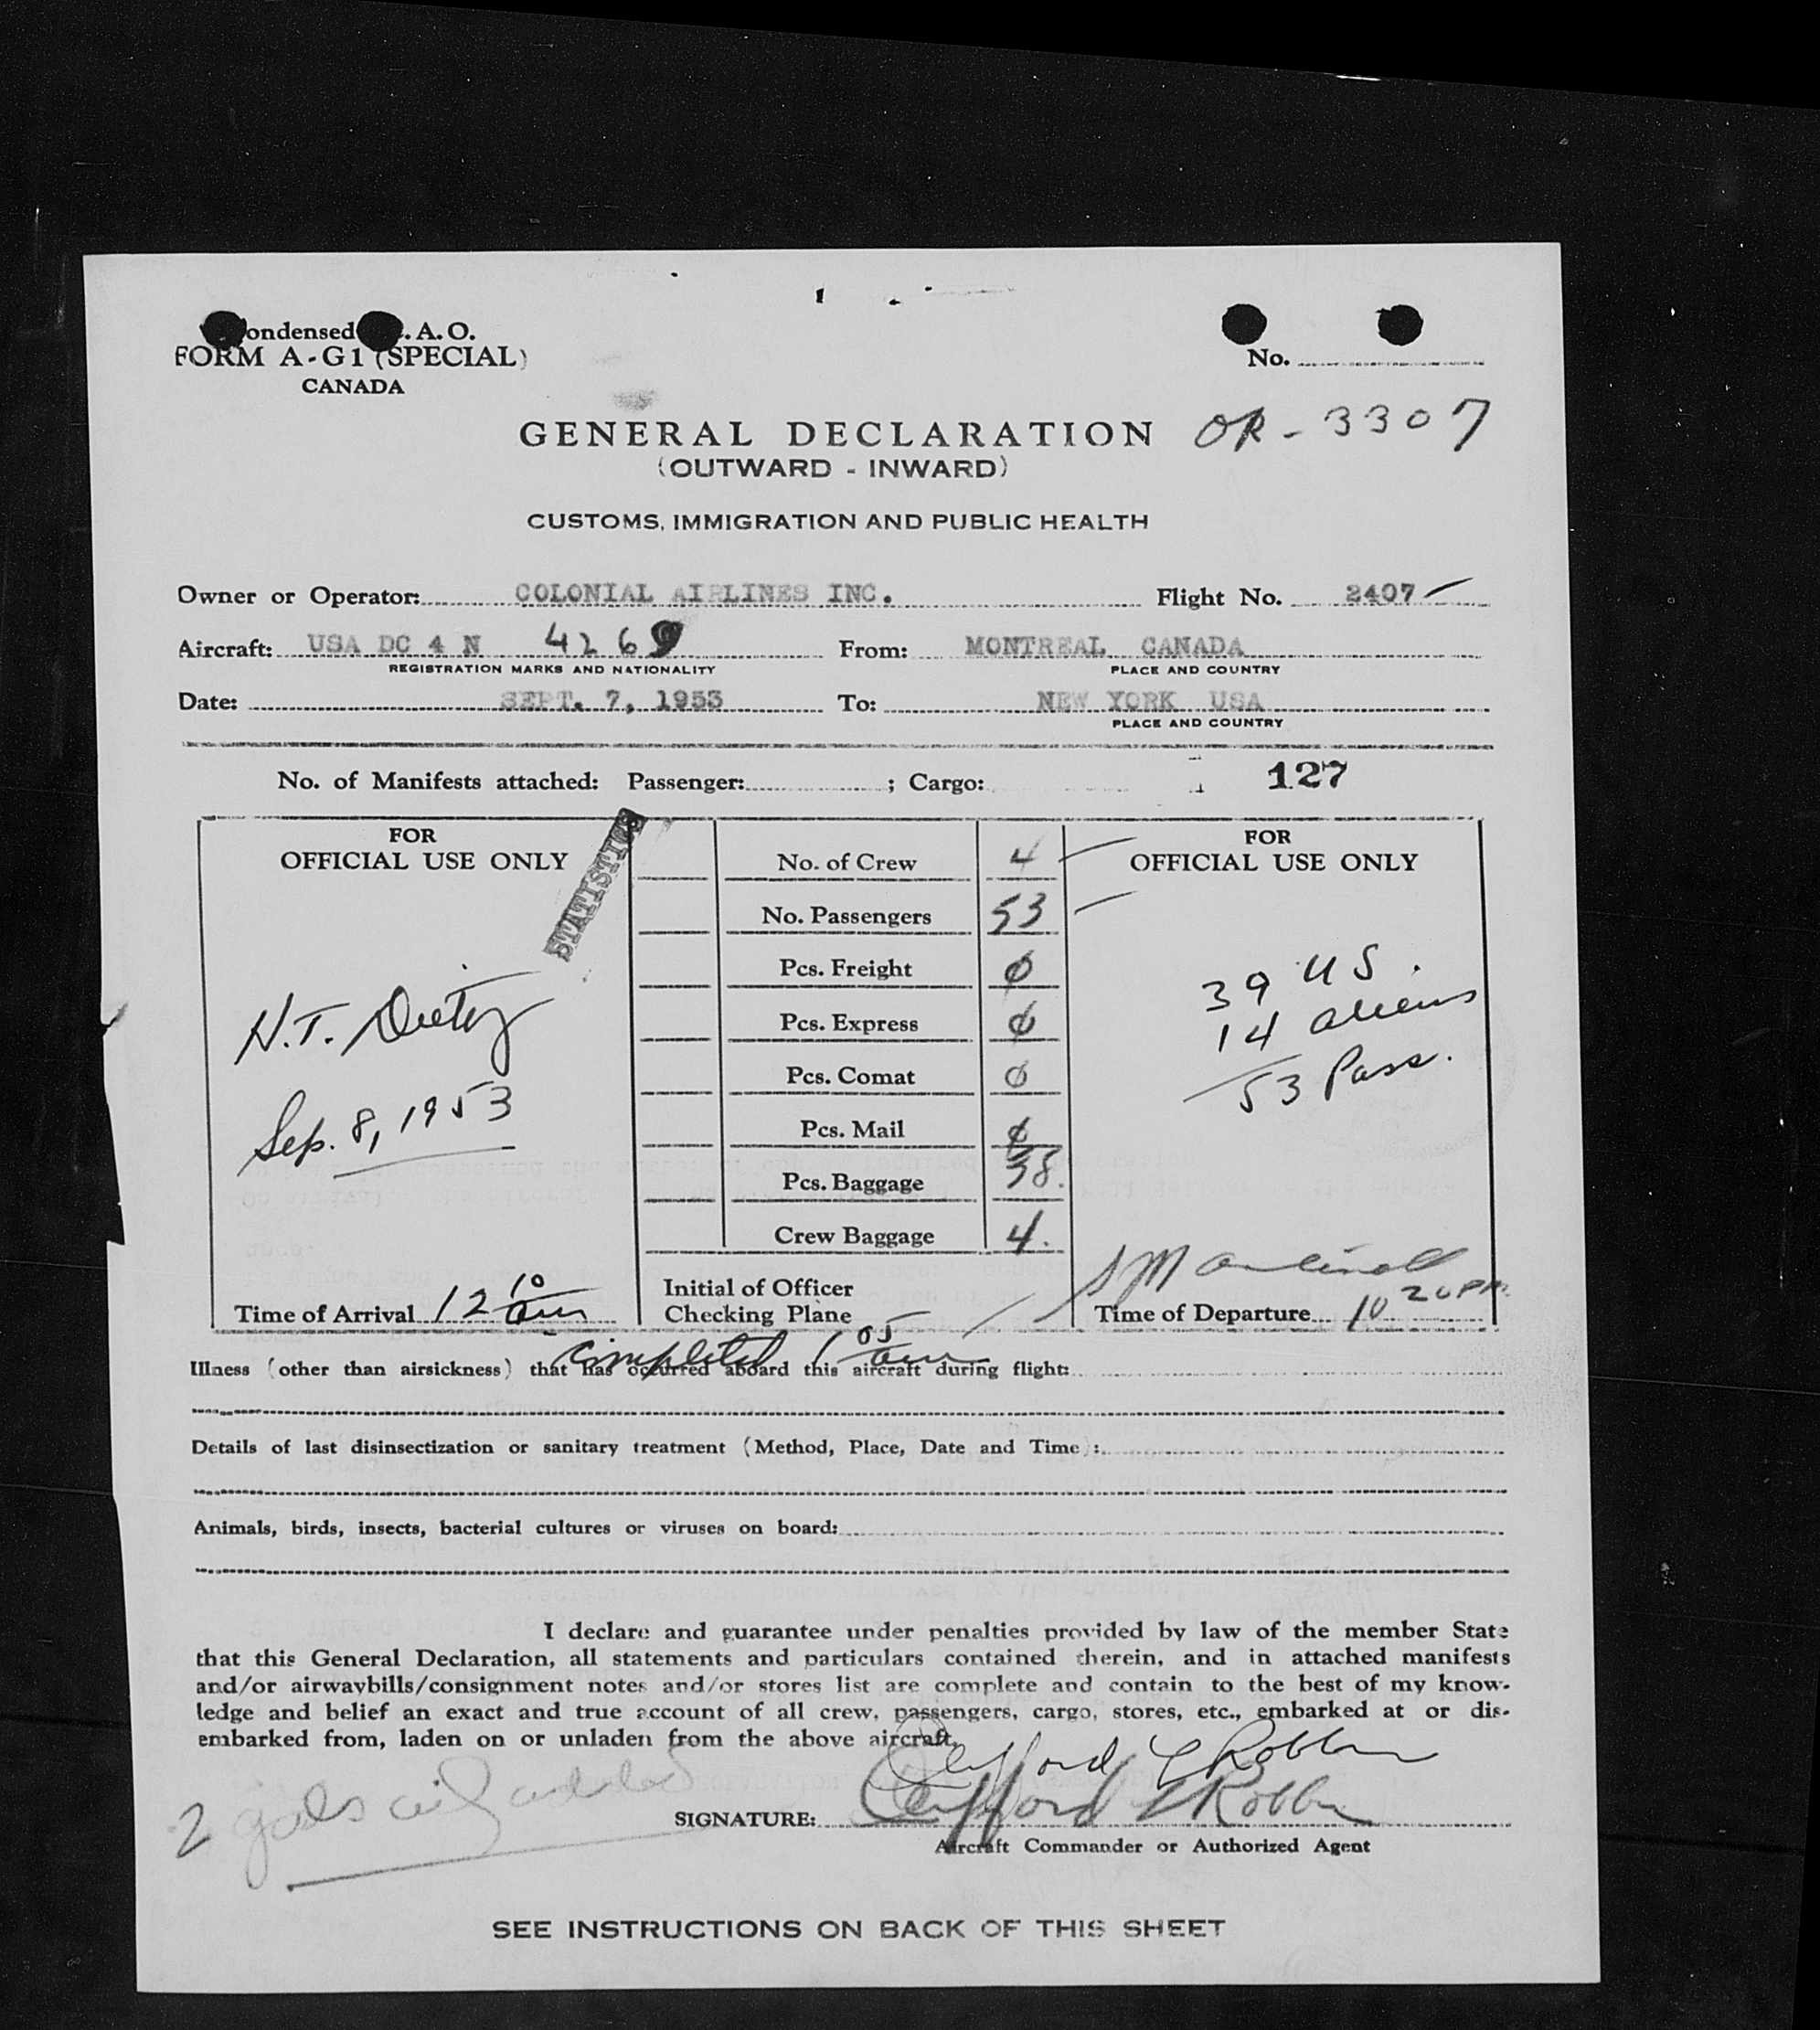 ondensed . A. O.
FORM A-G1 (SPECIAL)
CANADA
No.
GENERAL DECLARATION
OR-3307
(OUTWARD - INWARD)
CUSTOMS, IMMIGRATION AND PUBLIC HEALTH
Owner or Operator: COLONIAL AIRLINES INC. Flight No. 2407
Aircraft: USA DC 4 N 4269 From: MONTREAL CANADA
REGISTRATION MARKS AND NATIONALITY PLACE AND COUNTRY
Date: SEPT. 7, 1953 To: NEW YORK USA
PLACE AND COUNTRY
No. of Manifests attached: Passenger: ; Cargo: 127
FOR
OFFICIAL USE ONLY
STATISTICS
H.T. Dietz
Sep. 8, 1953
Time of Arrival 12 10 am
No. of Crew 4
No. Passengers 53
Pcs. Freight 0
Pcs. Express 0
Pcs. Comat 0
Pcs. Mail 0
Pcs. Baggage 38.
Crew Baggage 4.
Initial of Officer
Checking Plane
FOR
OFFICIAL USE ONLY
39 US.
14 aliens
53 Pass.
Time of Departure 10 20 PM.
completed 1 05 am
Illness (other than airsickness) that has occurred aboard this aircraft during flight:
Details of last disinsectization or sanitary treatment (Method, Place, Date and Time):
Animals, birds, insects, bacterial cultures or viruses on board:
I declare and guarantee under penalties provided by law of the member State
that this General Declaration, all statements and particulars contained therein, and in attached manifests
and/or airwaybills/consignment notes and/or stores list are complete and contain to the best of my know-
ledge and belief an exact and true account of all crew, passengers, cargo, stores, etc., embarked at or dis-
embarked from, laden on or unladen from the above aircraft.
Clifford L Robbins
2 gals oil added
SIGNATURE: Clifford L Robbins
Aircraft Commander or Authorized Agent
SEE INSTRUCTIONS ON BACK OF THIS SHEET